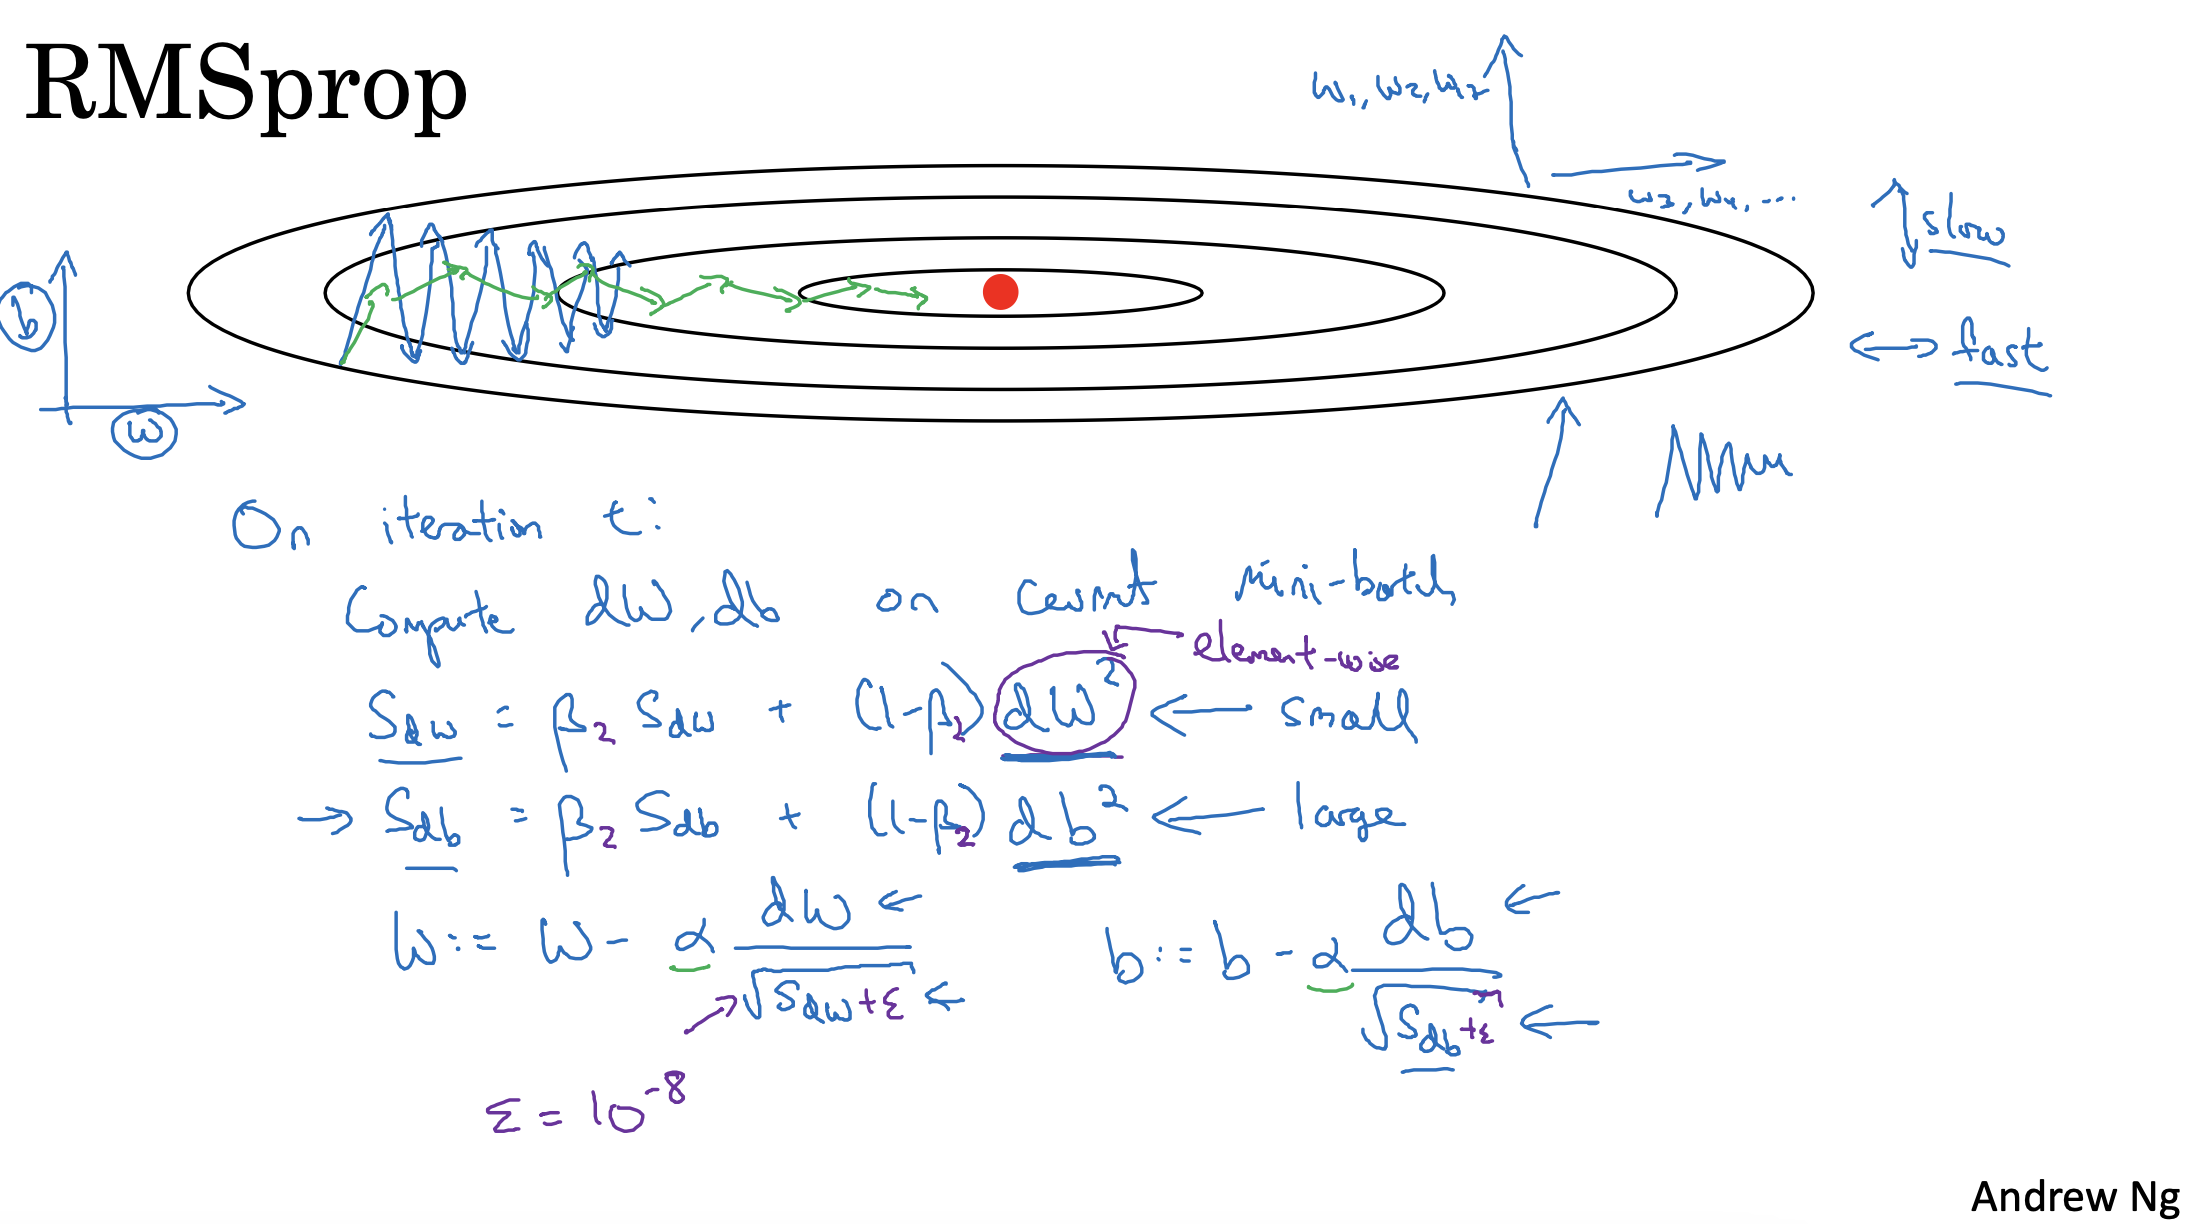 RMSprop
w₁, w₂, w₁₇
w₃, w₄, ...
slow
b
fast
w
On iteration t:
Compute dW, db on current mini-batch
element-wise
S_dw = β₂ S_dw + (1-β₂) dW² ← small
→ S_db = β₂ S_db + (1-β₂) db² ← large
W := W - α dW / √(S_dw + ε) ← b := b - α db / √(S_db + ε) ←
ε = 10⁻⁸
Andrew Ng